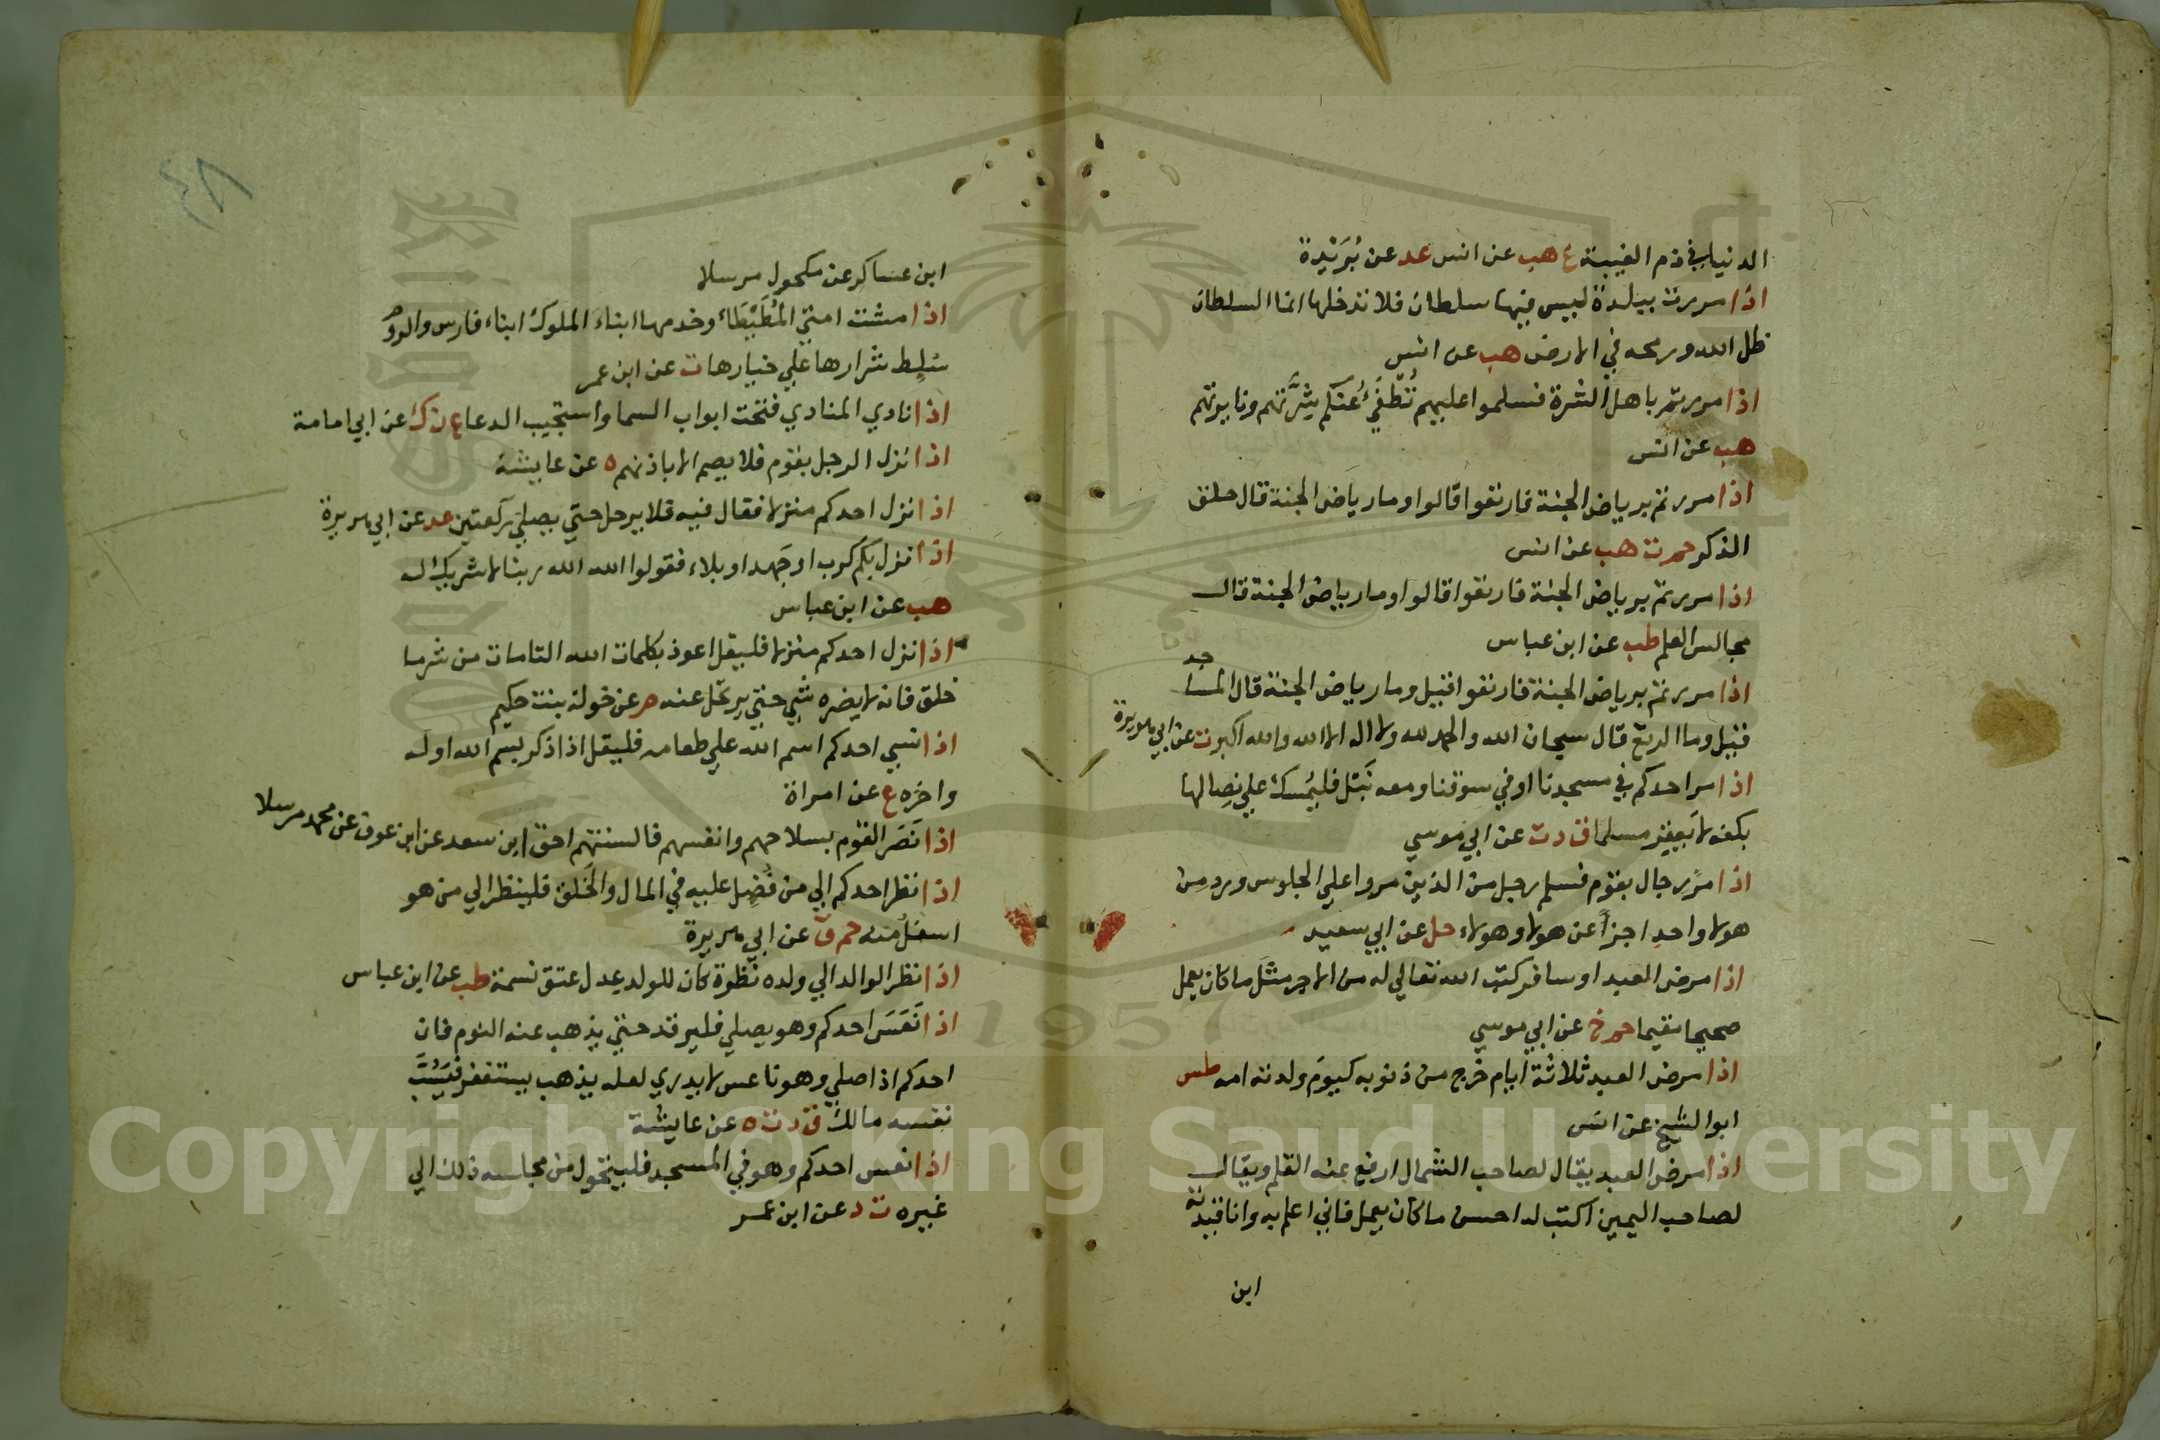 الدنيا في ذم الغيبة ع هب عن انس عد عن بُرَيْدة
اذا مررت ببلدة ليس فيها سلطان فلا تدخلها انما السلطان
ظل الله ورمحه في الارض هب عن انس
اذا مررتم باهل الشرة فسلموا عليهم تُطْفِيُ عنكم شِرَّتهم ونايرتهم
هب عن انس
اذا مررتم برياض الجنة فارتعوا قالوا وما رياض الجنة قال حلق
الذكر حم ت هب عن انس
اذا مررتم برياض الجنة فارتعوا قالوا وما رياض الجنة قال
مجالس العلم طب عن ابن عباس
اذا مررتم برياض الجنة فارتعوا قيل وما رياض الجنة قال المساجد
قيل وما الرتع قال سبحان الله والحمد لله ولا اله الا الله والله اكبر ت عن ابي هريرة
اذا مر احدكم في مسجدنا او في سوقنا ومعه نَبْل فليُمْسك علي نِصالها
بكفه لا يَعقِر مسلما ق د ت عن ابي موسي
اذا مَرَّ رجال بقوم فسلم رجل من الذين مروا علي الجلوس ورد مِن
هولا واحدٍ اجزأ عن هولا وهولاء حل عن ابي سعيد
اذا مرض العبد او سافر كتب الله تعالي له من الاجر مثلَ ما كان يعمل
صحيحا مقيما حم خ عن ابي موسي
اذا مرض العبد ثلاثة ايام خرج من ذنوبه كيوم ولدته امه طس
ابو الشيخ عن انس
اذا مرض العبد يقال لصاحب الشمال ارفع عنه القلم ويقال
لصاحب اليمين اكتب له احسن ما كان يعمل فاني اعلم به وانا قيدته
ابن
٨٤
ابن عساكر عن مكحول مرسلا
اذا مشت امتي المُطَيْطَاءَ وخدمها ابناءَ الملوك ابناء فارس والروم
سُلِط شرارها علي خيارها ت عن ابن عمر
اذا نادي المنادي فتحت ابواب السما واستجيب الدعا ع ك عن ابي امامة
اذا نزل الرجل بقوم فلا يصم الا باذنهم ه عن عايشة
اذا نزل احدكم منزلا فقال فيه فلا يرحل حتي يصلي ركعتين عد عن ابي هريرة
اذا نزل بكم كرب او جَهد او بلاء فقولوا الله الله ربنا لا شريك له
هب عن ابن عباس
اذا نزل احدكم منزلا فليقل اعوذ بكلمات الله التامات من شر ما
خلق فانه لا يضره شي حتي يرتحل عنه م عن خولة بنت حكيم
اذا نسي احدكم اسم الله علي طعامه فليقل اذا ذكر بسم الله اوله
واخره ع عن امراة
اذا نَصَرَ القوم بسلاحهم وانفسهم فالسنتهم احق ابن سعد عن ابن عوف عن محمد مرسلا
اذا نظر احدكم الي من فُضِل عليه في المال والخَلق فلينظر الي من هو
اسفلُ منه حم ق عن ابي هريرة
اذا نظر الوالد الي ولده نظرة كان للولد عدل عتق نسمة طب عن ابن عباس
اذا نَعَسَ احدكم وهو يصلي فليرقد حتي يذهب عنه النوم فان
احدكم اذا صلي وهو ناعس لا يدري لعله يذهب يستغفر فيَسُبَّ
نفسه مالك ق د ت ه عن عايشة
اذا نعس احدكم وهو في المسجد فليتحول من مجلسه ذلك الي
غيره ت د عن ابن عمر
1957
Copyright © King Saud University